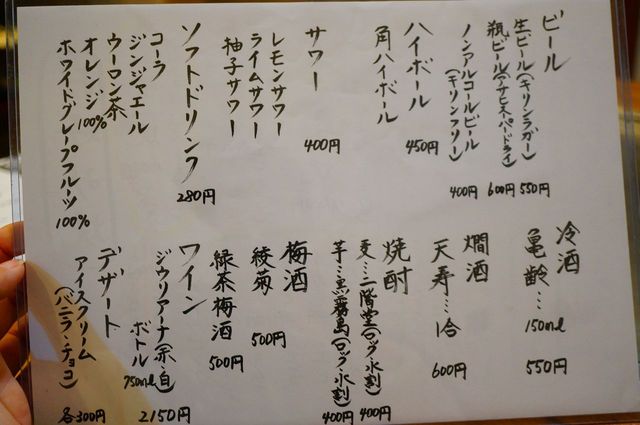 ビール
生ビール(キリンラガー) 550円
瓶ビール(アサヒスーパードライ) 600円
ノンアルコールビール
(キリンフリー) 400円
ハイボール 450円
角ハイボール
サワー 400円
レモンサワー
ライムサワー
柚子サワー
ソフトドリンク 280円
コーラ
ジンジャエール
ウーロン茶
オレンジ100%
ホワイトグレープフルーツ100%
冷酒
亀齢… 150ml 550円
燗酒
天寿…1合 600円
焼酎
麦…二階堂(ロック・水割) 400円
芋…黒霧島(ロック・水割) 400円
梅酒
綾菊 500円
緑茶梅酒 500円
ワイン
ジウリアーナ(赤・白) 2150円
ボトル 750ml
デザート
アイスクリーム
(バニラ・チョコ) 各300円